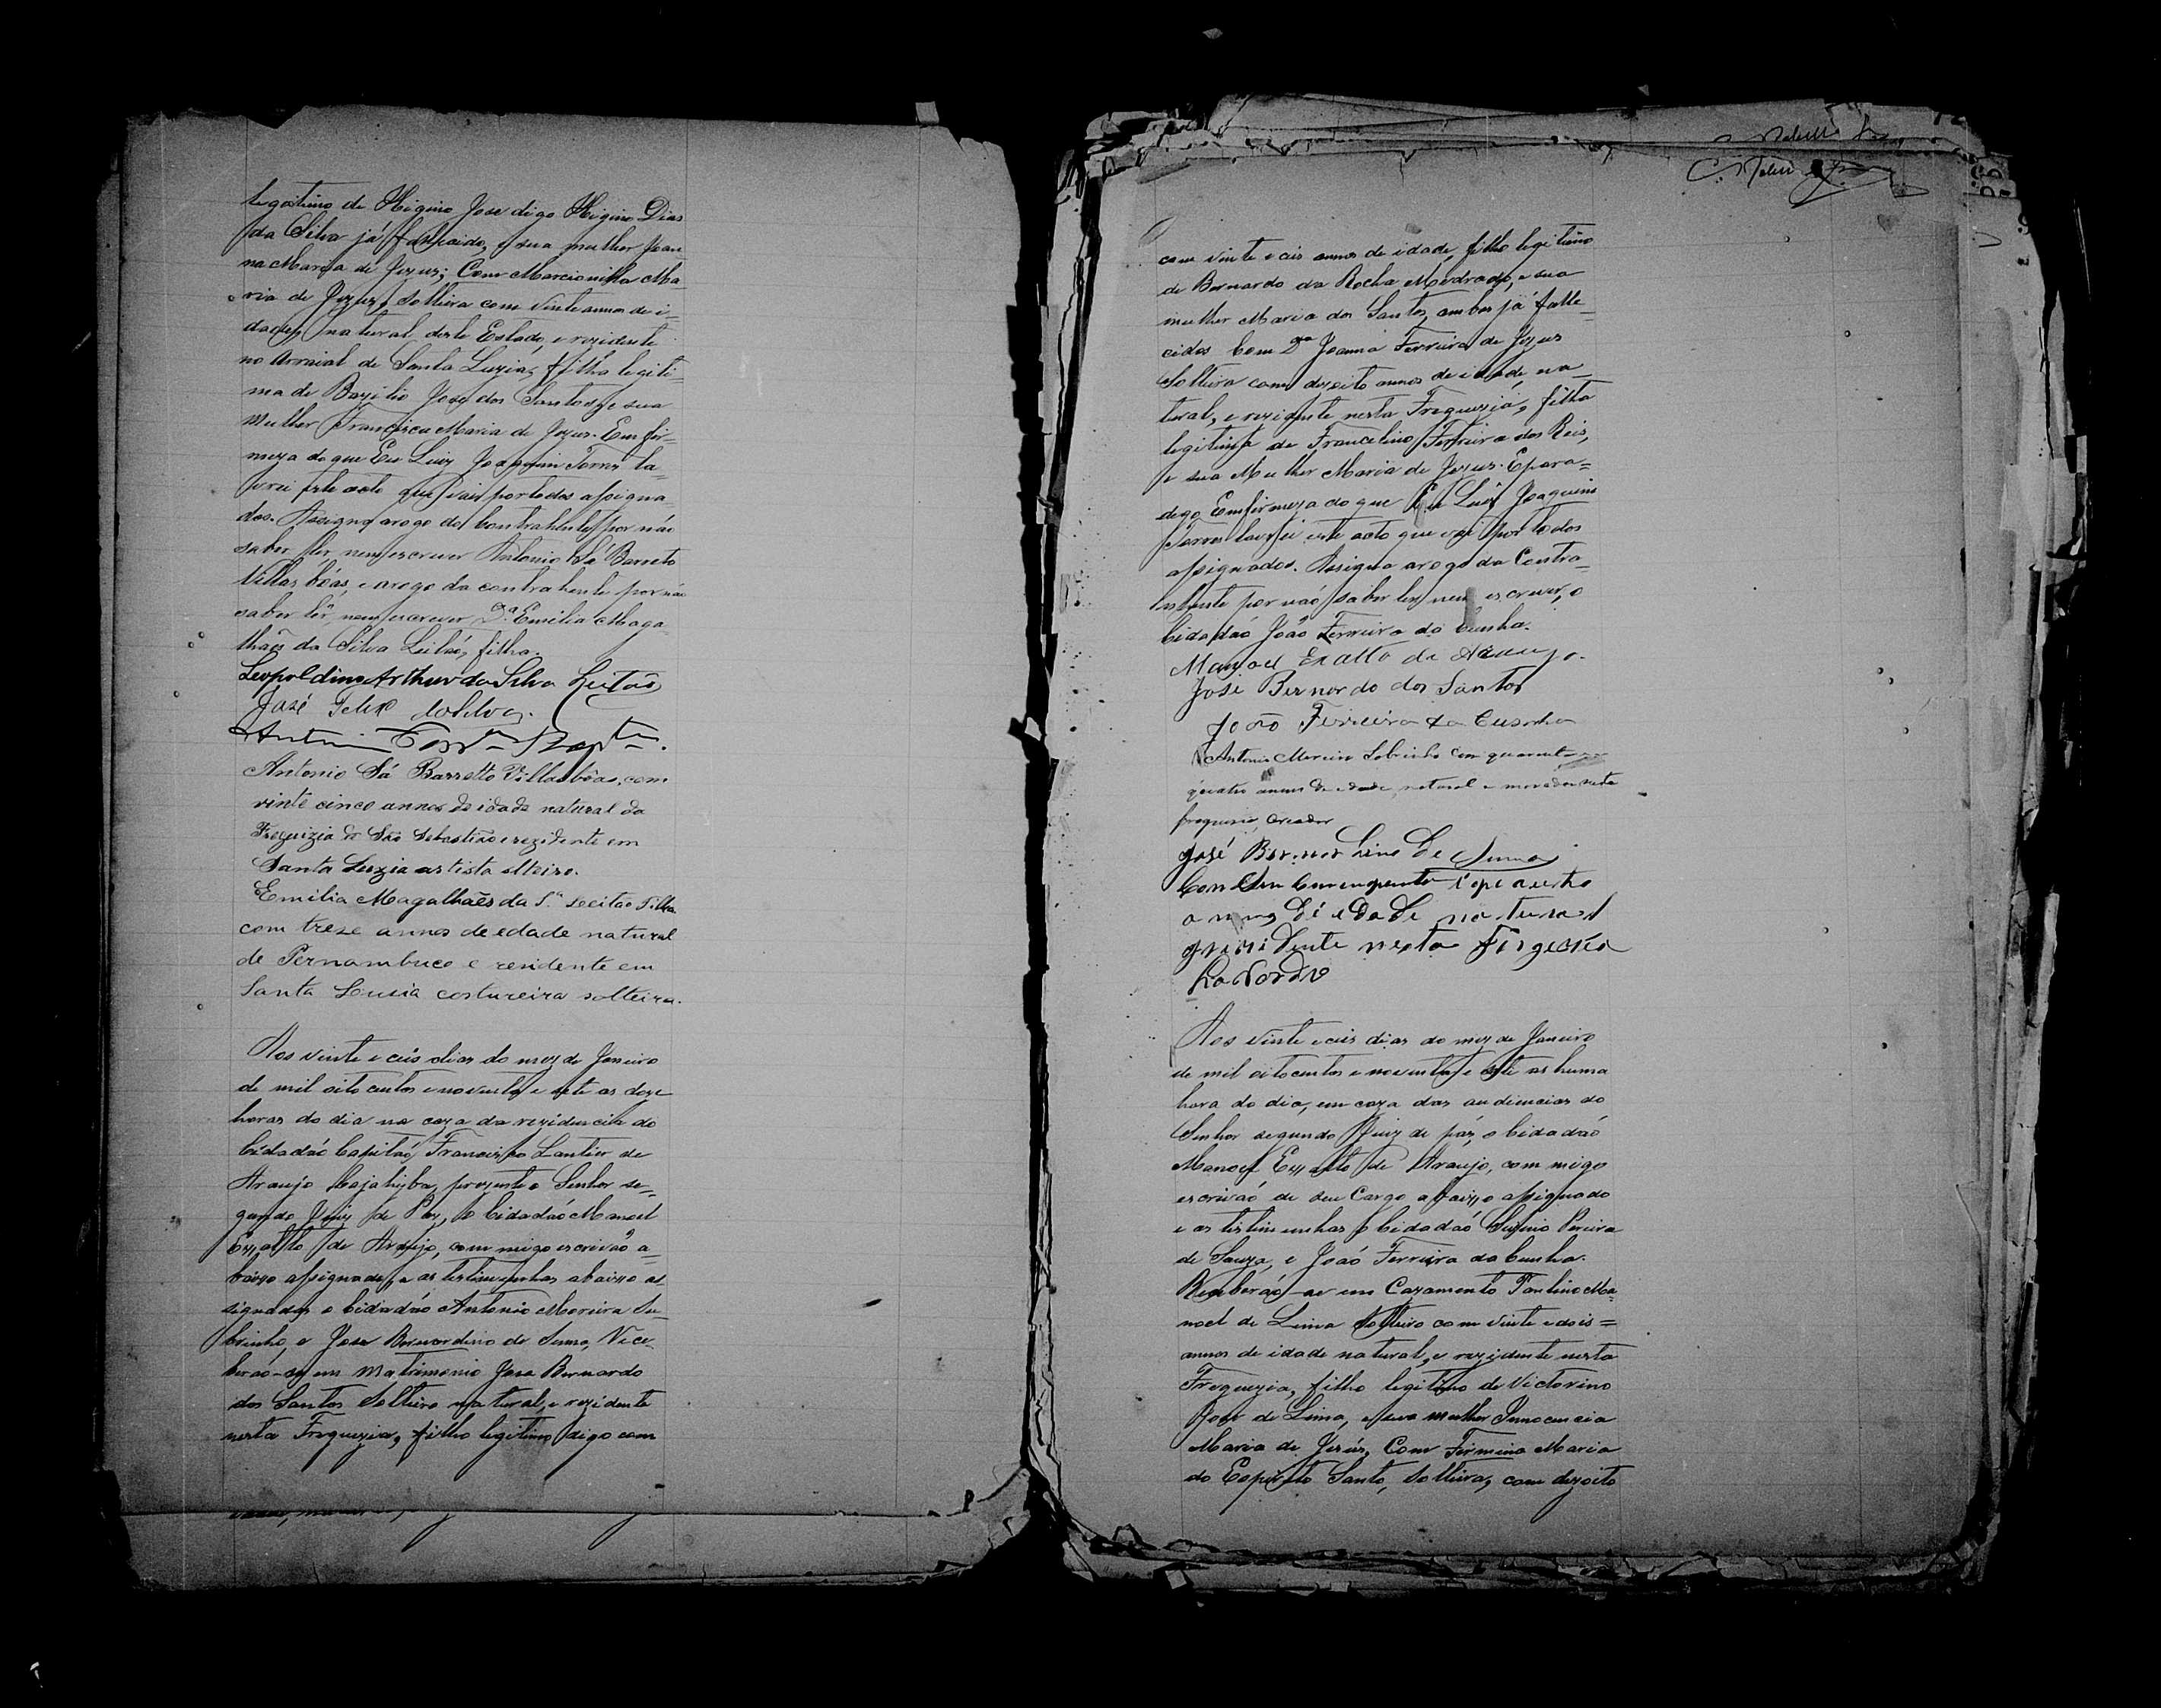 legitimo de Higino Jose digo Higino Dias
da Silva já fallecido, e sua mulher Joan
na Maria de Jezus; Com Marcionilla Ma-
ria de Jezus, Solteira com vinte annos de i-
dade, natural deste Estado, e rezidente
no Arraial de Santa Luzia, filha legiti-
ma de Bazilio Jose dos Santos, e sua
Mulher Francisca Maria de Jezus. Em fir-
meza do que Eu Luiz Joaquim Torres la-
vrei este acto que vai por todos assigna-
dos. Assigna arogo do Contrahente por não
saber ler, nem escrever Antonio Sá Barreto
Villas bôas, e arogo da contrahente por não
saber ler, nem escrever D.ª Emilia Maga-
lhães da Silva Leitão, filha.
Leopoldino Arthur da Silva Leitão
José Felix da Silva.
Antonio
Antonio Sá Barretto Villasbôas, com
vinte cinco annos de idade natural da
Freguizia de São Sebastião e rezidente em
Santa Luzia artista solteiro.
Emilia Magalhães da S.ª Leitão Filha
com treze annos de edade natural
de Pernambuco e residente em
Santa Lusia costureira solteira.
Aos vinte e ceis dias do mez de Janeiro
de mil oito centos e noventa e sete as doze
horas do dia na caza da rezidencia do
Cidadão Capitão Francisco Lantier de
Araujo Cajahyba, prezente o Senhor se-
gundo Juiz de Paz, o Cidadão Manoel
Exalto de Araujo, com migo escrivaõ a-
baixo assignado, e as testimunhas abaixo as
signadas o Cidadão Antonio Moreira So-
brinho, e Jose Bernardino de Senna, Rece-
berão-se em Matrimonio Jose Bernardo
dos Santos Solteiro natural, e rezidente
nesta Freguezia, filho legitimo digo com
com vinte e ceis annos de idade, filho legitimo
de Bernardo da Rocha Medrado, e sua
mulher Maria dos Santos, ambos já falle-
cidos Com Dna Joanna Ferreira de Jezus
Solteira com dezoito annos de idade na-
tural, e rezidente nesta Freguezia, filha
legitima de Francelino Ferreira dos Reis,
e sua Mulher Maria de Jezus. E para=
digo Em firmeza do que Eu Luiz Joaquim
Torres lavrei este acto que vai por todos
assignados. Assigna arogo da Contra-
hente por naõ saber ler, nem escrever, o
Cidadaõ João Ferreira da Cunha.
Manoel Exalto de Araujo.
José Bernardo dos Santos
João Ferreira da Cunha
Antonio Moreira Sobrinho com quarenta
quatro annos de edade, natural e morador nesta
freguesia, creador
José Bernardino de Senna
annos dé idade natural
nesta
Lavrador
Aos vinte e ceis dias do mez de Janeiro
de mil oitocentos e noventa e sete as huma
hora do dia, em caza das audiencias do
Senhor segundo Juiz de páz, o Cidadaõ
Manoel Exalto de Araujo, com migo
escrivaõ de seu Cargo abaixo assignado
e as testimunhas o Cidadaõ Pereira
de Souza, e Joaõ Ferreira da Cunha.
Receberão-se em Cazamento Paulino Ma-
noel de Lima Solteiro com vinte e dois=
annos de idade natural, e rezidente nesta
Freguezia, filho legitimo de Victorino
Jose de Lima, e sua mulher Innocencia
Maria de Jesús, Com Firmina Maria
do Espirito Santo, Solteira, com dezoito